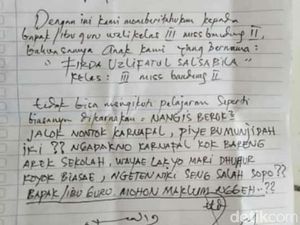 Dengan ini kami memberitahukan kepada
Bapak/Ibu guru wali kelas III miss bandung II,
bahwasannya anak kami yang bernama:
"FIRDA UZLIFATUL SALSABILA"
Kelas: III miss bandung II
tidak bisa mengikuti pelajaran seperti
biasanya dikarenakan: NANGIS BEROK2
JALOK NONTOK KARNAFAL, PIYE BUMUNJIDAH
IKI ?? NGADAKNO KARNAFAL KOK BARENG
AREK SEKOLAH, WAYAE LAKYO MARI DHUHUR
KOYOK BIASAE, NGETEN NIKI SENG SALAH SOPO??
BAPAK/IBU GURU MOHON MAKLUM NGGEH..??
detikcom